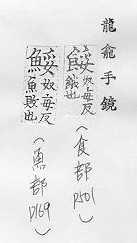 龍龕手鏡
奴每反餓也
(食部 P501)
奴每反魚敗也
(魚部 P169)